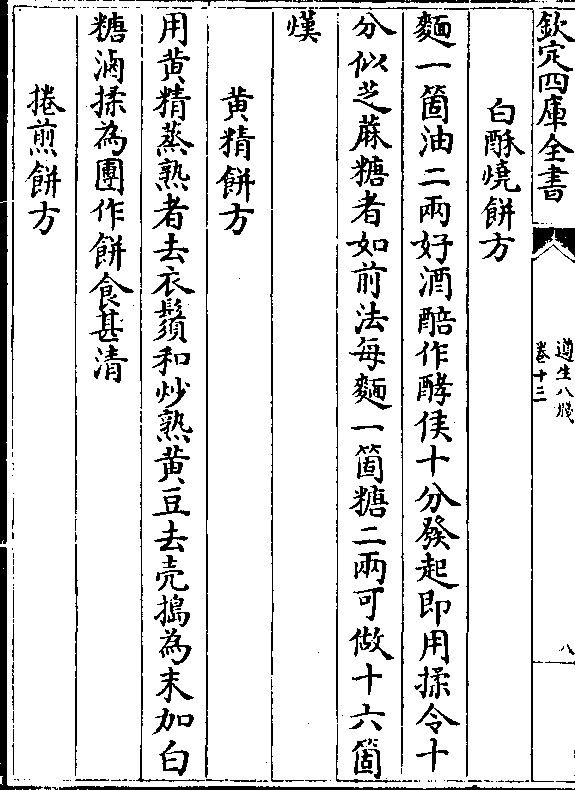 欽定四庫全書
遵生八牋
卷十三
八
白酥燒餅方
麵一箇油二兩好酒醅作酵𠉀十分發起即用揉令十
分似芝蔴糖者如前法每麵一箇糖二兩可做十六箇
熯
黄精餅方
用黄精蒸熟者去衣鬚和炒熟黄豆去壳搗為末加白
糖滷揉為團作餅食甚清
捲煎餅方